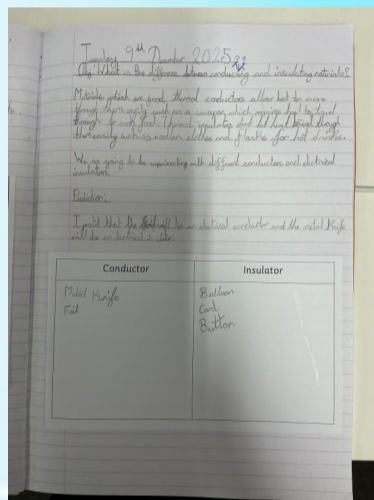 Tuesday 9th December 2025
Obj: What is the difference between conducting and insulating materials?
Materials which are good thermal conductors allow heat to move
through them easily such as a saucepan which requires heat to travel
through to cook food. Thermal insulators dont let heat travel through
them easily such as woolen clothes and flasks for hot drinks.
We are going to be experimenting with different conductors and electrical
insulators.
Prediction:
I predict that the foil will be an electrical conductor and the metal Knife
will be an electrical
Conductor
Insulator
Metal Knife
Foil
Balloon
Card
Button